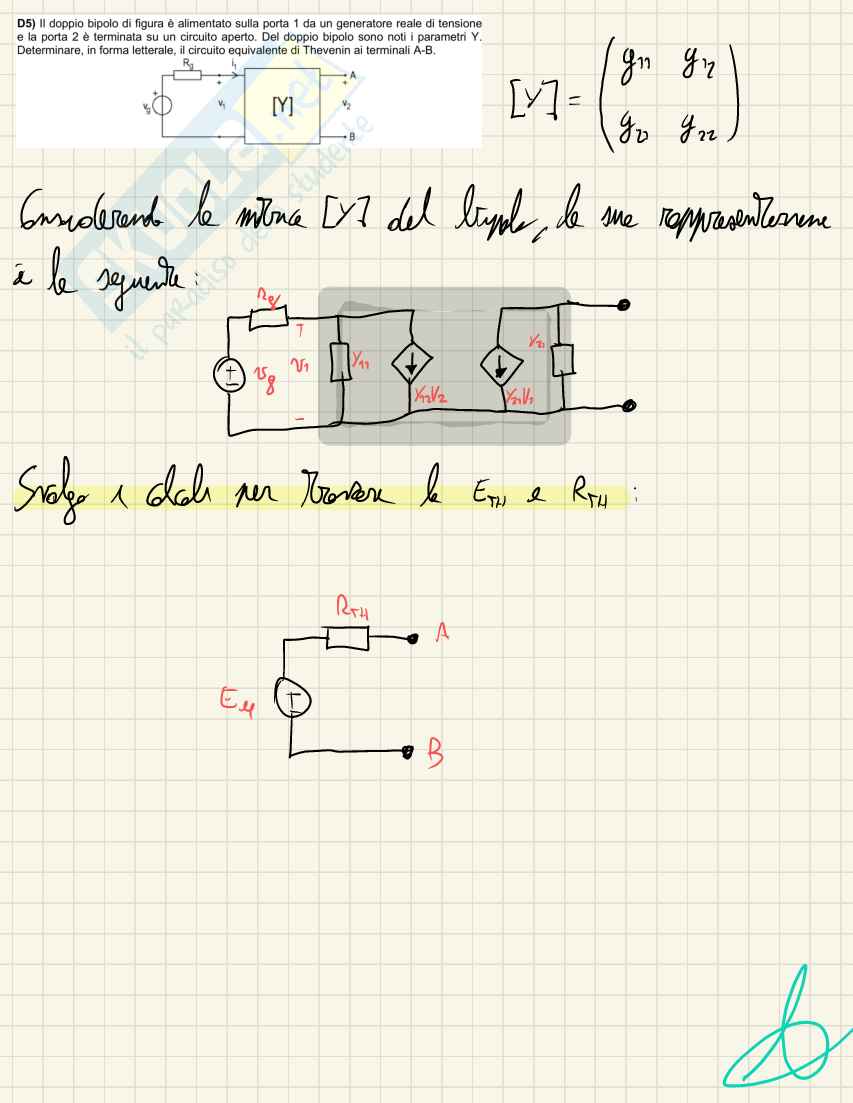 D5) Il doppio bipolo di figura è alimentato sulla porta 1 da un generatore reale di tensione
e la porta 2 è terminata su un circuito aperto. Del doppio bipolo sono noti i parametri Y.
Determinare, in forma letterale, il circuito equivalente di Thevenin ai terminali A-B.
Rg i1 A
+ +
vg v1 [Y] v2
B
[Y] = ( y11 y12
y22 y22 )
SKUOLA.net
il paradiso dello studente
Considerando la matrice [Y] del
la sua rappresentazione
è la seguente:
Rg
+
vg v1 Y11 Y12V2 Y21V1 Y21
-
Svolgo i calcoli per trovare la ETH e RTH :
RTH
A
B